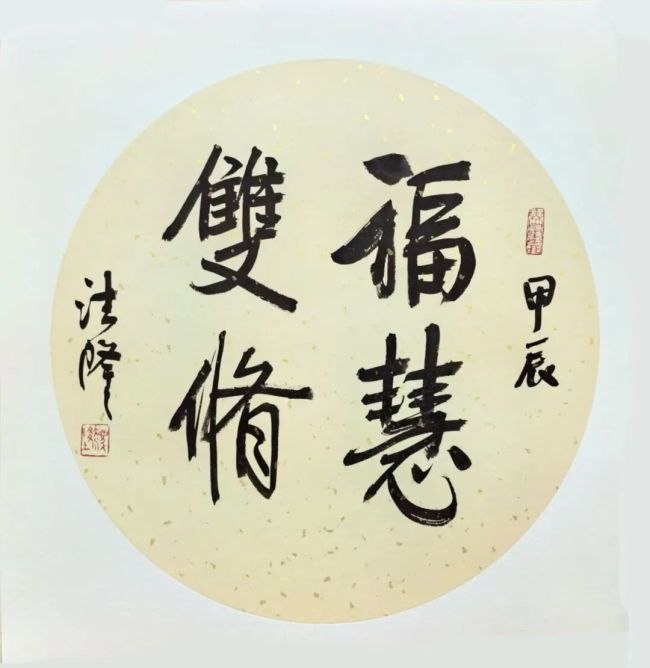 甲辰
福慧
雙脩
法隆